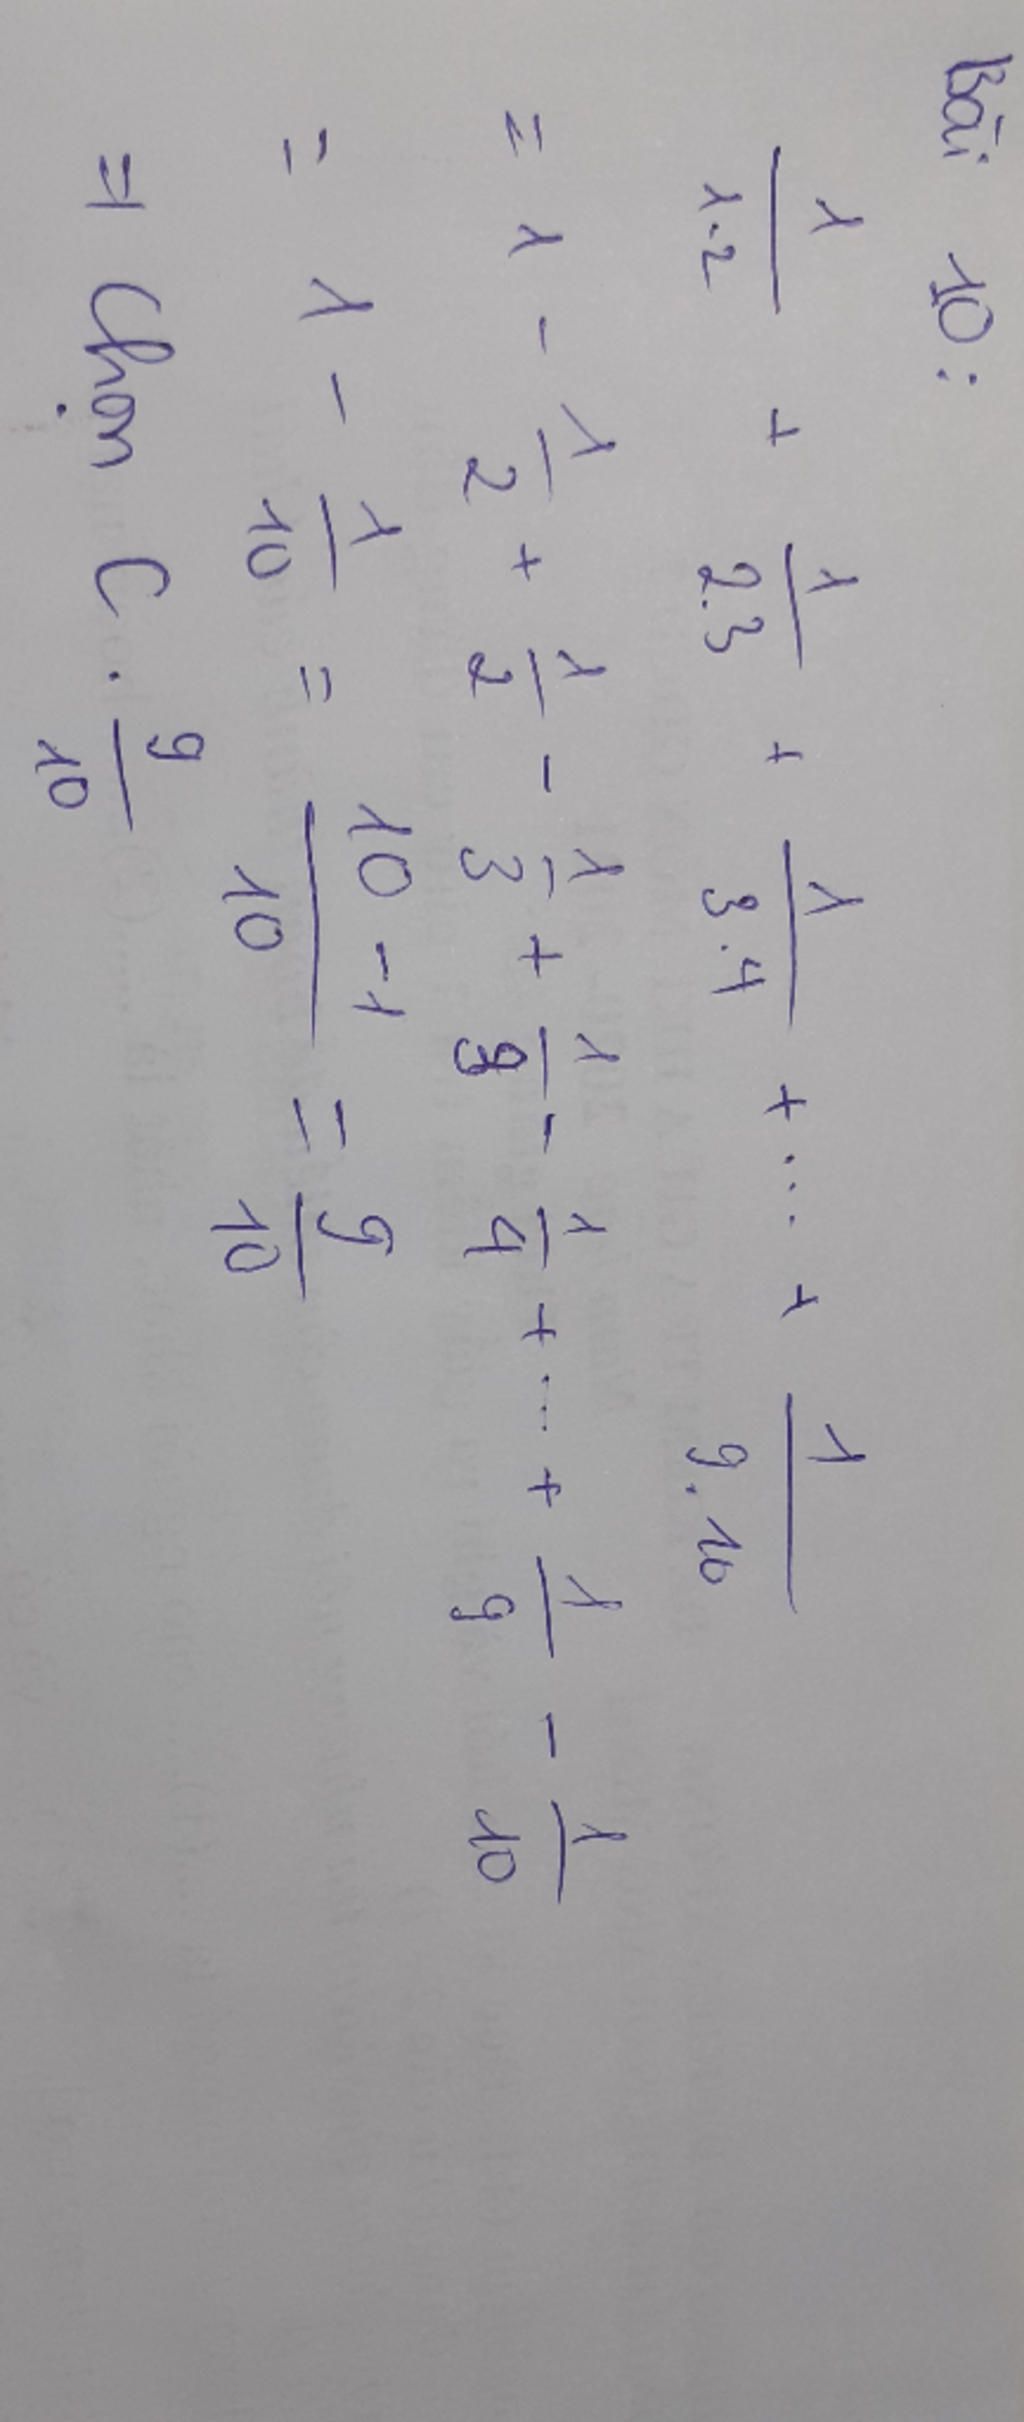 Bài 10:
1/1.2 + 1/2.3 + 1/3.4 + ... + 1/9.10
= 1 - 1/2 + 1/2 - 1/3 + 1/3 - 1/4 + ... + 1/9 - 1/10
= 1 - 1/10 = 10-1/10 = 9/10
=> Chọn C. 9/10